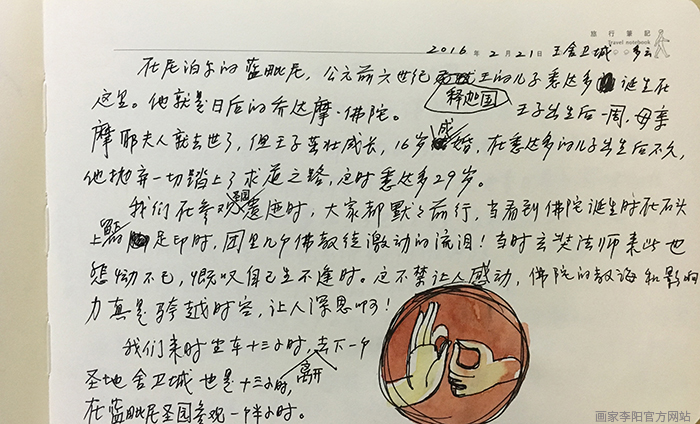 旅行筆記
Travel notebook
2016年2月21日 王舍卫城 多云
在尼泊尔的蓝毗尼，公元前六世纪释迦国王的儿子悉达多诞生在
这里。他就是日后的乔达摩·佛陀。王子出生后一周，母亲
摩耶夫人就去世了，但王子茁壮成长，16岁成婚，在悉达多的儿子出生后不久，
他抛弃一切踏上了求道之路，这时悉达多29岁。
我们在参观圣园遗迹时，大家都默默前行，当看到佛陀诞生时在石头
上踏足印时，团里几个佛教徒激动的流泪！当时玄奘法师来此也
悲恸不已，慨叹自己生不逢时。这不禁让人感动，佛陀的教诲和影响
力真是跨越时空，让人深思啊！
我们来时坐车十三小时，离开去下一个
圣地舍卫城也是十三小时，
在蓝毗尼圣园参观一个半小时。
画家李阳官方网站